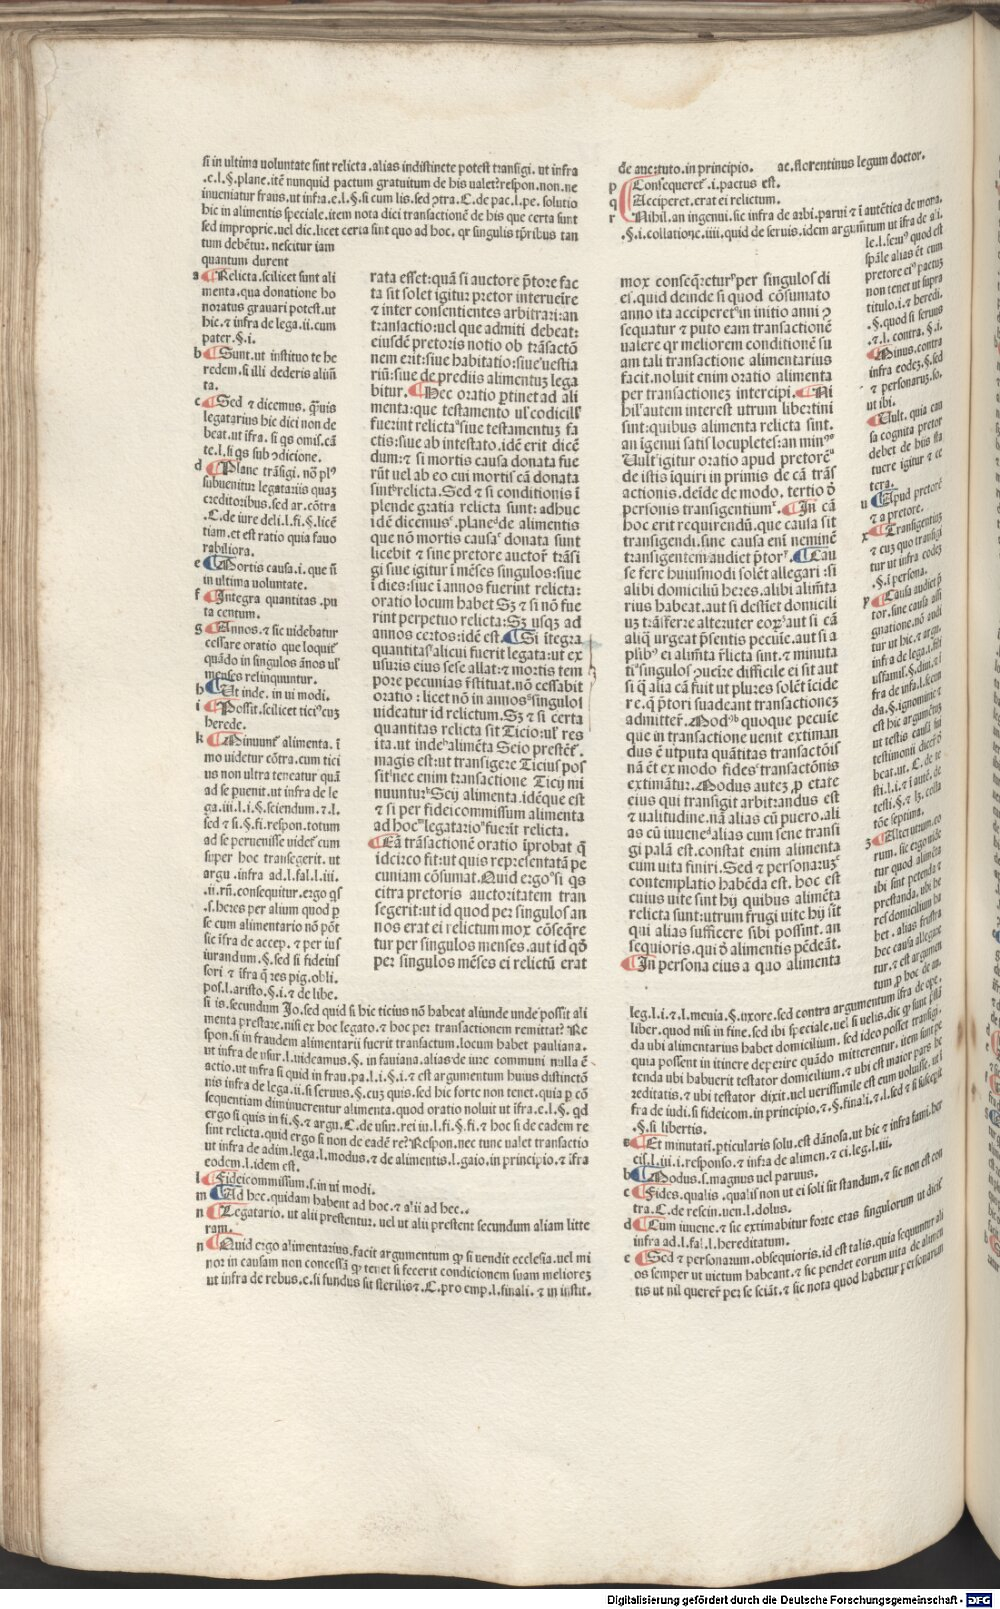 si in ultima uoluntate sint relicta .alias indistincte potest transigi. ut infra
.e.l.§.plane.itē nunquid pactum gratuitum de his ualet?respon.non.ne
inueniatur fraus.ut infra.e.l.§.si cum lis.sed ↄtra.C.de pac.l.pe. solutio
hic in alimentis speciale.item nota dici transactionē de his que certa sunt
sed improprie.uel dic.licet certa sint quo ad hoc. qr singulis tp̄ribus tan
tum debētur. nescitur iam
quantum durent
a Relicta.scilicet sunt ali
menta.qua donatione ho
noratus grauari potest.ut
hic.⁊ infra de lega.ii.cum
pater.§.i.
b Sunt.ut instituo te he
redem.si illi dederis alim̄
ta.
c Sed ⁊ dicemus. q̄uis
legatarius hic dici non de
beat.ut īfra. si qs omis.cā
te.l.si qs sub ↄdicione.
d Plane trāsigi. nō plꝰ
subuenitur legatariis quaꝫ
creditoribus.sed ar.cōtra
.C.de iure deli.l.fi.§.licē
tiam.et est ratio quia fauo
rabiliora.
e Mortis causa.i. que ñ
in ultima uoluntate.
f Integra quantitas .pu
ta centum.
g Annos.⁊ sic uidebatur
cessare oratio que loquit̉
quādo in singulos ānos ul̉
menses relinquuntur.
h Ut inde. in ui modi.
i Possit.scilicet ticiꝰ cuꝫ
herede.
k Minuunt̉ alimenta. ī
mo uidetur cōtra.cum tici
us non ultra teneatur quā
ad se peruenit.ut infra de le
ga.iii.l.i.§.sciendum.⁊.l.
sed ⁊ si.§.fi.respon.totum
ad se peruenisse uidet̉ cum
super hoc transegerit. ut
argu .infra ad.l.fal.l.iii.
.ii.rn̄.consequitur.ergo qs
.s.heres per alium quod p̱
se cum alimentario nō pōt
sic īfra de accep. ⁊ per ius
iurandum. §.sed si fideius
sori ⁊ īfra q̄ res pig.obli.
pos.l.aristo.§.i.⁊ de libe.
rata esset:quā si auctore p̄tore fac
ta sit solet igitur pretor interueire
⁊ inter consentientes arbitrari:an
transactio:uel que admiti debeat:
eiusdē pretoris notio ob trāsactō
nem erit:siue habitatio:siue uestia
riū:siue de prediis alimentuꝫ lega
bitur. Hec oratio p̱tinet ad ali
menta:que testamento ul̉ codicill̉
fuerint relicta siue testamentuꝫ fa
ctis:siue ab intestato.idē erit dicē
dum:⁊ si mortis causa donata fue
rūt uel ab eo cui mortis cā donata
sunt relicta.Sed ⁊ si conditionis ī
plende gratia relicta sunt: adhuc
idē dicemus .plane de alimentis
que nō mortis causa donata sunt
licebit ⁊ sine pretore auctor̄ trāsi
gi siue igitur ī mēses singulos:siue
ī dies:siue ī annos fuerint relicta:
oratio locum habet Sꝫ ⁊ si nō fue
rint perpetuo relicta:Sꝫ usqꝫ ad
annos certos:idē est. Si ītegra
quantitas alicui fuerit legata:ut ex
usuris eius sese allat:⁊ mortis tem
pore pecunias r̄stituat.nō cessabit
oratio : licet nō in annos singulos
uideatur id relictum.Sꝫ ⁊ si certa
quantitas relicta sit Ticio:ul̉ res
ita.ut inde alimēta Seio prestēt̉.
magis est:ut transigere Ticius pos
sit nec enim transactione Ticij mi
nuuntur Seij alimenta.idēque est
⁊ si per fideicommissum alimenta
ad hoc legatario fuerīt relicta.
Eā trāsactionē oratio īprobat q̄
idcirco fit:ut quis representatā pe
cuniam cōsumat.Quid ergo si qs
citra pretoris auctoritatem tran
segerit:ut id quod per singulos an
nos erat ei relictum mox cōseq̄re
tur per singulos menses.aut id qđ
per singulos mēses ei relictū erat
si is.secundum Jo.sed quid si hic ticius nō habeat aliunde unde possit ali
menta prestare.nisi ex hoc legato.⁊ hoc per transactionem remittat? Re
spon.si in fraudem alimentarii fuerit transactum.locum habet pauliana.
ut infra de usur.l.uideamus.§. in fauiana.alias de iure communi nulla ē
actio.ut infra si quid in frau.pa.l.i.§.i.⁊ est argumentum huius distinctō
nis infra de lega.ii.si seruus.§.cuꝫ quis.sed hic forte non tenet.quia p̱ cō
sequentiam diminuerentur alimenta.quod oratio noluit ut īfra.e.l.§. qđ
ergo si quis in fi.§.⁊ argu.C.de usu.rei iu.l.fi.§.fi.⁊ hoc si de eadem re
sint relicta.quid ergo si non de eadē re? Respon.nec tunc ualet transactio
ut infra de adim.lega.l.modus.⁊ de alimentis.l.gaio.in principio.⁊ īfra
eodem.l.idem est.
l Fideicommissum.s.in ui modi.
m Ad hec.quidam habent ad hoc.⁊ alii ad hec..
n Legatario. ut alii prestentur. uel ut alii prestent secundum aliam litte
ram.
n Quid ergo alimentarius.facit argumentum ꝙ si uendit ecclesia.uel mi
nor in causam non concessā ꝙ tenet si fecerit condicionem suam melioreꝫ
ut infra de rebus.e.si fundus sit sterilis⁊.C.pro emp.l.finali. ⁊ in instit.
de auc.tuto.in principio. ac.florentinus legum doctor.
p Consequeret̉.i.pactus est.
q Acciperet.erat ei relictum.
r Nihil.an ingenui.sic infra de arbi.parui ⁊ ī autētica de mona.
.§.i.collatione.iiii.quid de seruis.idem argum̄tum ut īfra de ali.
le.l.seruꝰ quod est
sp̄ale alias et̄ cum
pretore eiꝰ pactuꝫ
non tenet ut supra
titulo.i.⁊ heredi.
.§.quod si seruus
.⁊.l. contra. §.i.
Minus.contra
infra eodeꝫ.§.sed
⁊ personaruꝫ.so.
ut ibi.
Uult. quia cau
sa cognita pretor
debet de hiis sta
tuere igitur ⁊ ce
tera.
u Apud pretorē
⁊ a pretore.
x Transigentiuꝫ
⁊ cuꝫ quo transigi
tur ut infra eodeꝫ
.§.i persona.
y Causa audiet p̄
tor.sine causa assi
gnatione.nō audi
tur ut hic.⁊ argu.
infra de lega.i.fili
usfamil.§.diui.⁊ ī
fra de infa.l.secun
da.§.ignominie ⁊
est hic argumētuꝫ
ut testis causā sui
testimonii dicer̄ đ
beat.ut. C. de te
sti.l.i.⁊ ī autē. de
testi.§.⁊ lꝫ. colla
tōe septima.
z Alterutrum.eo
rum. sic ergo uide
tur quod alimēta
ibi sint petenda ⁊
prestanda. ubi he
res domicilium ha
bet . alias frustra
hec causa allegare
tur.⁊ est argumen
tum p̱ hoc de an.
mox conseq̄retur per singulos di
es.quid deinde si quod cōsumato
anno ita acciperet in initio anni ꝯ
sequatur ⁊ puto eam transactionē
ualere qr meliorem conditionē su
am tali transactione alimentarius
facit.noluit enim oratio alimenta
per transactioneꝫ intercipi. Ni
hil autem interest utrum libertini
sint:quibus alimenta relicta sint.
an īgenui satis locupletes:an minꝰ
Uult igitur oratio apud pretorē
de istis īquiri in primis de cā trās
actionis.deīde de modo. tertio đ
personis transigentium. In cā
hoc erit requirendū.que causa sit
transigendi.sine causa enī neminē
transigentem audiet p̄tor. Cau
se fere huiusmodi solēt allegari :si
alibi domiciliū heres.alibi alim̄ta
rius habeat.aut si destīet domicili
uꝫ trāsferre alteruter eorꝫ aut si cā
aliq̄ urgeat p̄sentis pecuīe.aut si a
plibꝰ ei alim̄ta r̄licta sint.⁊ minuta
tī singulos ꝯueīre difficile ei sit aut
si q̄ alia cā fuit ut plures solēt īcide
re.q̄ p̄tori suadeant transactioneꝫ
admitter̄. Modꝰ quoque pecuīe
que in transactione uenit extiman
dus ē utputa quātitas transactōis
nā ⁊ ex modo fides transactōnis
extimātur. Modus auteꝫ p̱ etate
eius qui transigit arbitrandus est
⁊ ualitudine.nā alias cū puero.ali
as cū iuuene alias cum sene transi
gi palā est.constat enim alimenta
cum uita finiri. Sed ⁊ personaruꝫ
contemplatio habēda est. hoc est
cuius uite sint hij quibus alimēta
relicta sunt:utrum frugi uite hij sīt
qui alias sufficere sibi possint. an
sequioris.qui đ alimentis pēdeāt.
In persona eius a quo alimenta
leg.l.i.⁊.l.meuia.§.uxore.sed contra argumentum īfra de ope.
liber.quod nisi in fine.sed ibi speciale.uel si uelis.dic ꝙ sunt p̄stā
da ubi alimentarius habet domicilium. sed ideo posset transigi.
quia possent in itinere deperire quādo mitterentur. item sunt pe
tenda ubi habuerit testator domicilium.⁊ ubi est maior pars he
reditatis.⁊ ubi testator dixit.uel uerissimile est eum uoluisse. ut ī
fra de iudi.si fideicom.in principio.⁊.§.finali.⁊.l.sed ⁊ si suscepit
.§.si libertis.
a Et minutatī.p̱ticularis solu.est dānosa.ut hic ⁊ infra fami.her
cis.l.iii.i.responso.⁊ infra de alimen.⁊ ci.leg.l.iii.
b Modus.s.magnus uel paruus.
c Fides.qualis .qualis non ut ei soli sit standum.⁊ sic non est con
tra.C.de rescin.uen.l.dolus.
d Cum iuuene.⁊ sic extimabitur forte etas singulorum ut dicit̉
infra ad.l.fal.l.hereditatum.
e Sed ⁊ personarum.obsequioris.id est talis.quia sequuntur ali
os semper ut uictum habeant.⁊ sic pendet eorum uita de alimen
tis ut nil querer̄ per se sciāt.⁊ sic nota quod habetur p̱ personarum
Digitalisierung gefördert durch die Deutsche Forschungsgemeinschaft - DFG